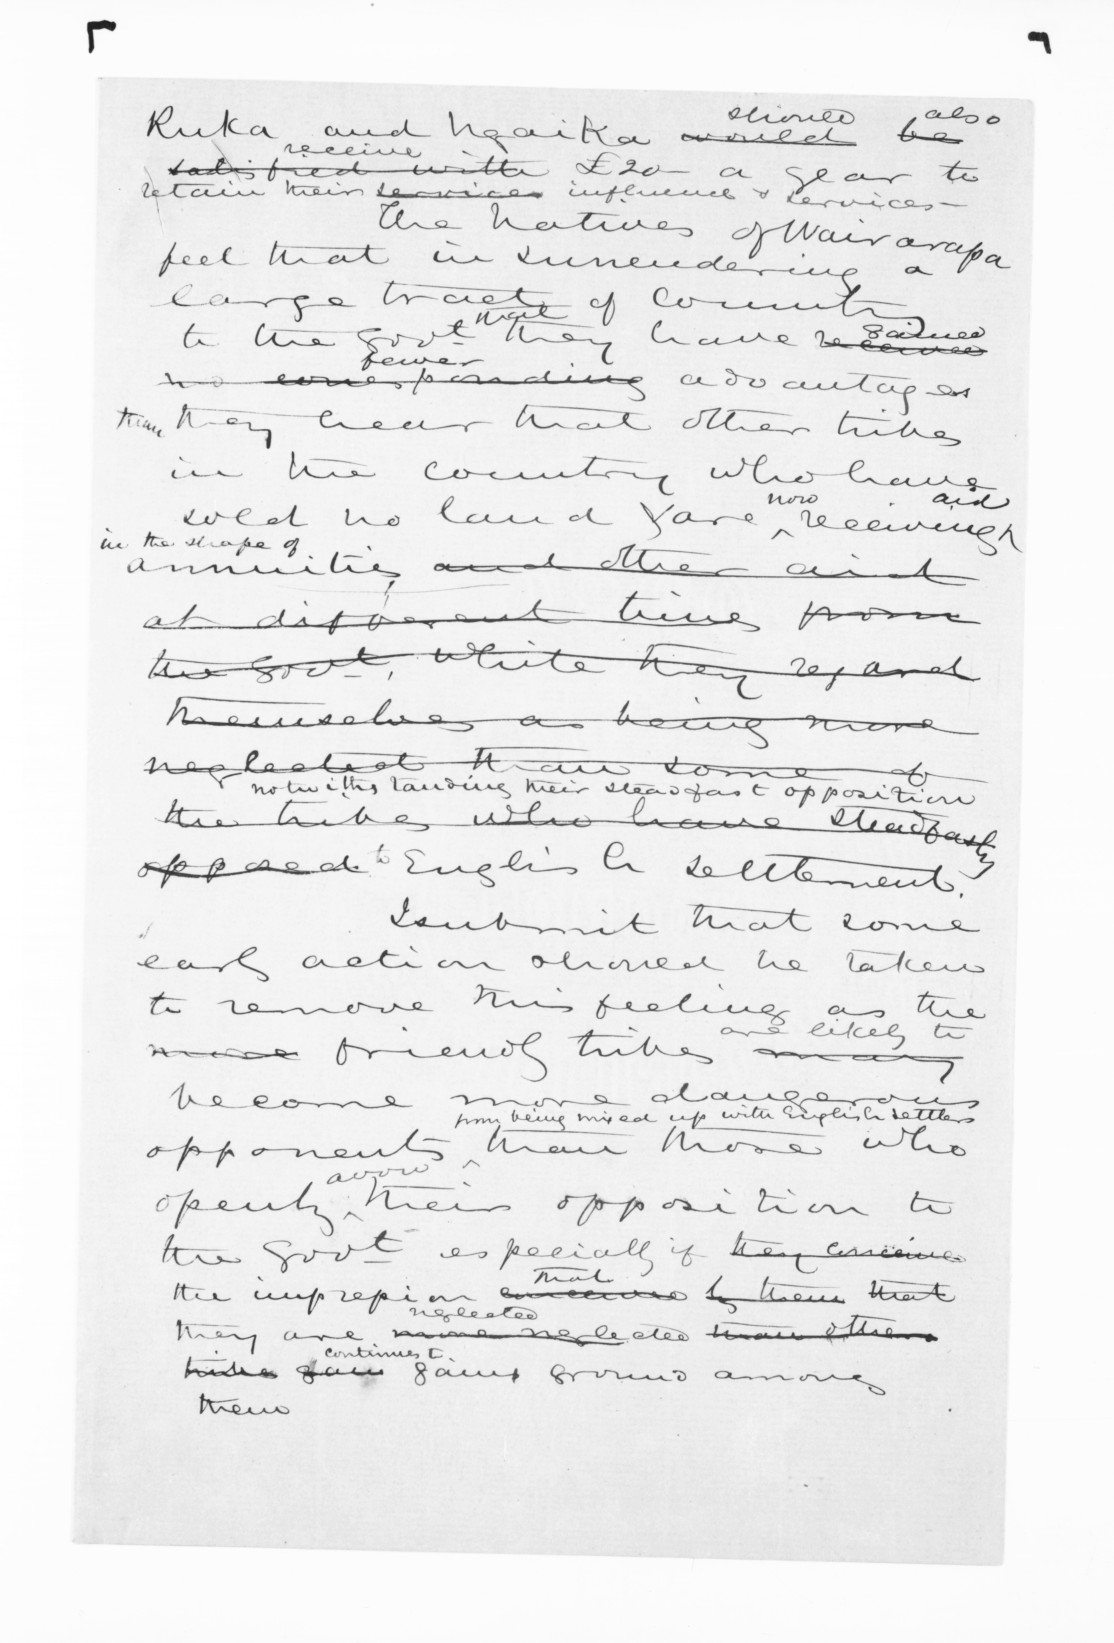 should also
Ruka and Ngaika would be
receive
satisfied with £20 a year to
retain their services influence & services—
The Natives of Wairarapa
feel that in surrendering a
large tract of country
to the Govt that they have received gained
fewer
no corresponding advantages
than they hear that other tribes
in the country who have
now aid
sold no land & are receiving
in the shape of
annuities, and other aid
at different times from
the Govt, while they regard
themselves as being more
neglected than some of
notwithstanding their steadfast opposition
the tribes who have steadfastly
opposed to English settlement.
I submit that some
early action should be taken
to remove this feeling as the
are likely to
more friendly tribes may
become more dangerous
from being mixed up with English settlers
opponents than those who
avow
openly their opposition to
the Govt especially if they conceive
that
the impression conceived by them that
neglected
they are more neglected than other
continues to
tribes gain gains ground among
them